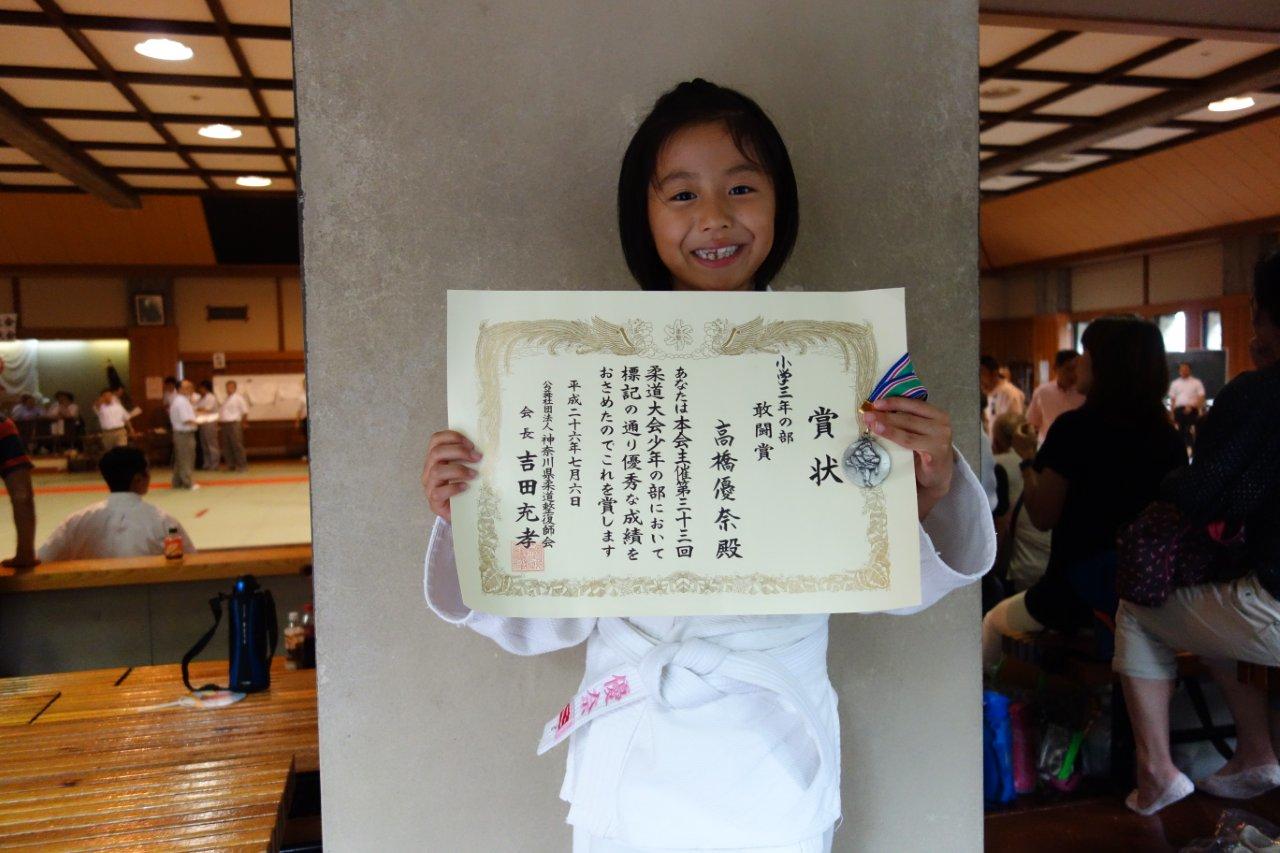 賞状
小学三年の部
敢闘賞
高橋優奈殿
あなたは本会主催第三十三回
柔道大会少年の部において
標記の通り優秀な成績を
おさめたのでこれを賞します
平成二十六年七月六日
公益社団法人神奈川県柔道整復師会
会長吉田充孝
優奈